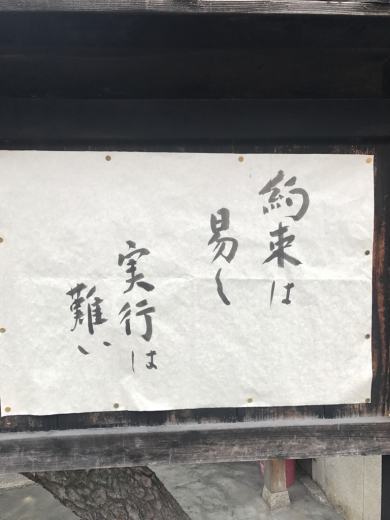 約束は
易く
実行は
難い